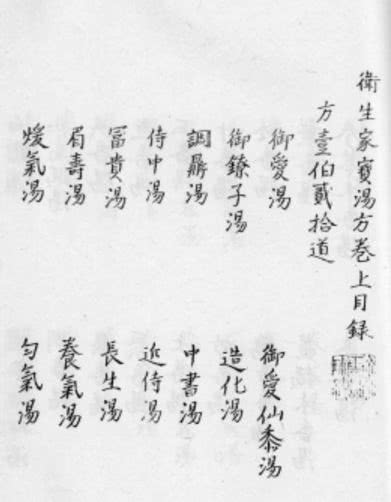 衛生家寳湯方巻上目録
方壹伯貳拾道
御愛湯 御愛仙黍湯
御鐐子湯 造化湯
調鼎湯 中書湯
侍中湯 近侍湯
冨貴湯 長生湯
眉壽湯 養氣湯
煖氣湯 匀氣湯